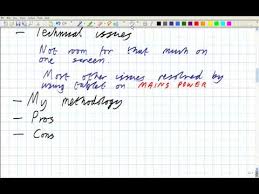 – Technical issues
Not room for that much on
one screen.
Most other issues resolved by
using tablet on MAINS POWER
– My methodology
– Pros
– Cons